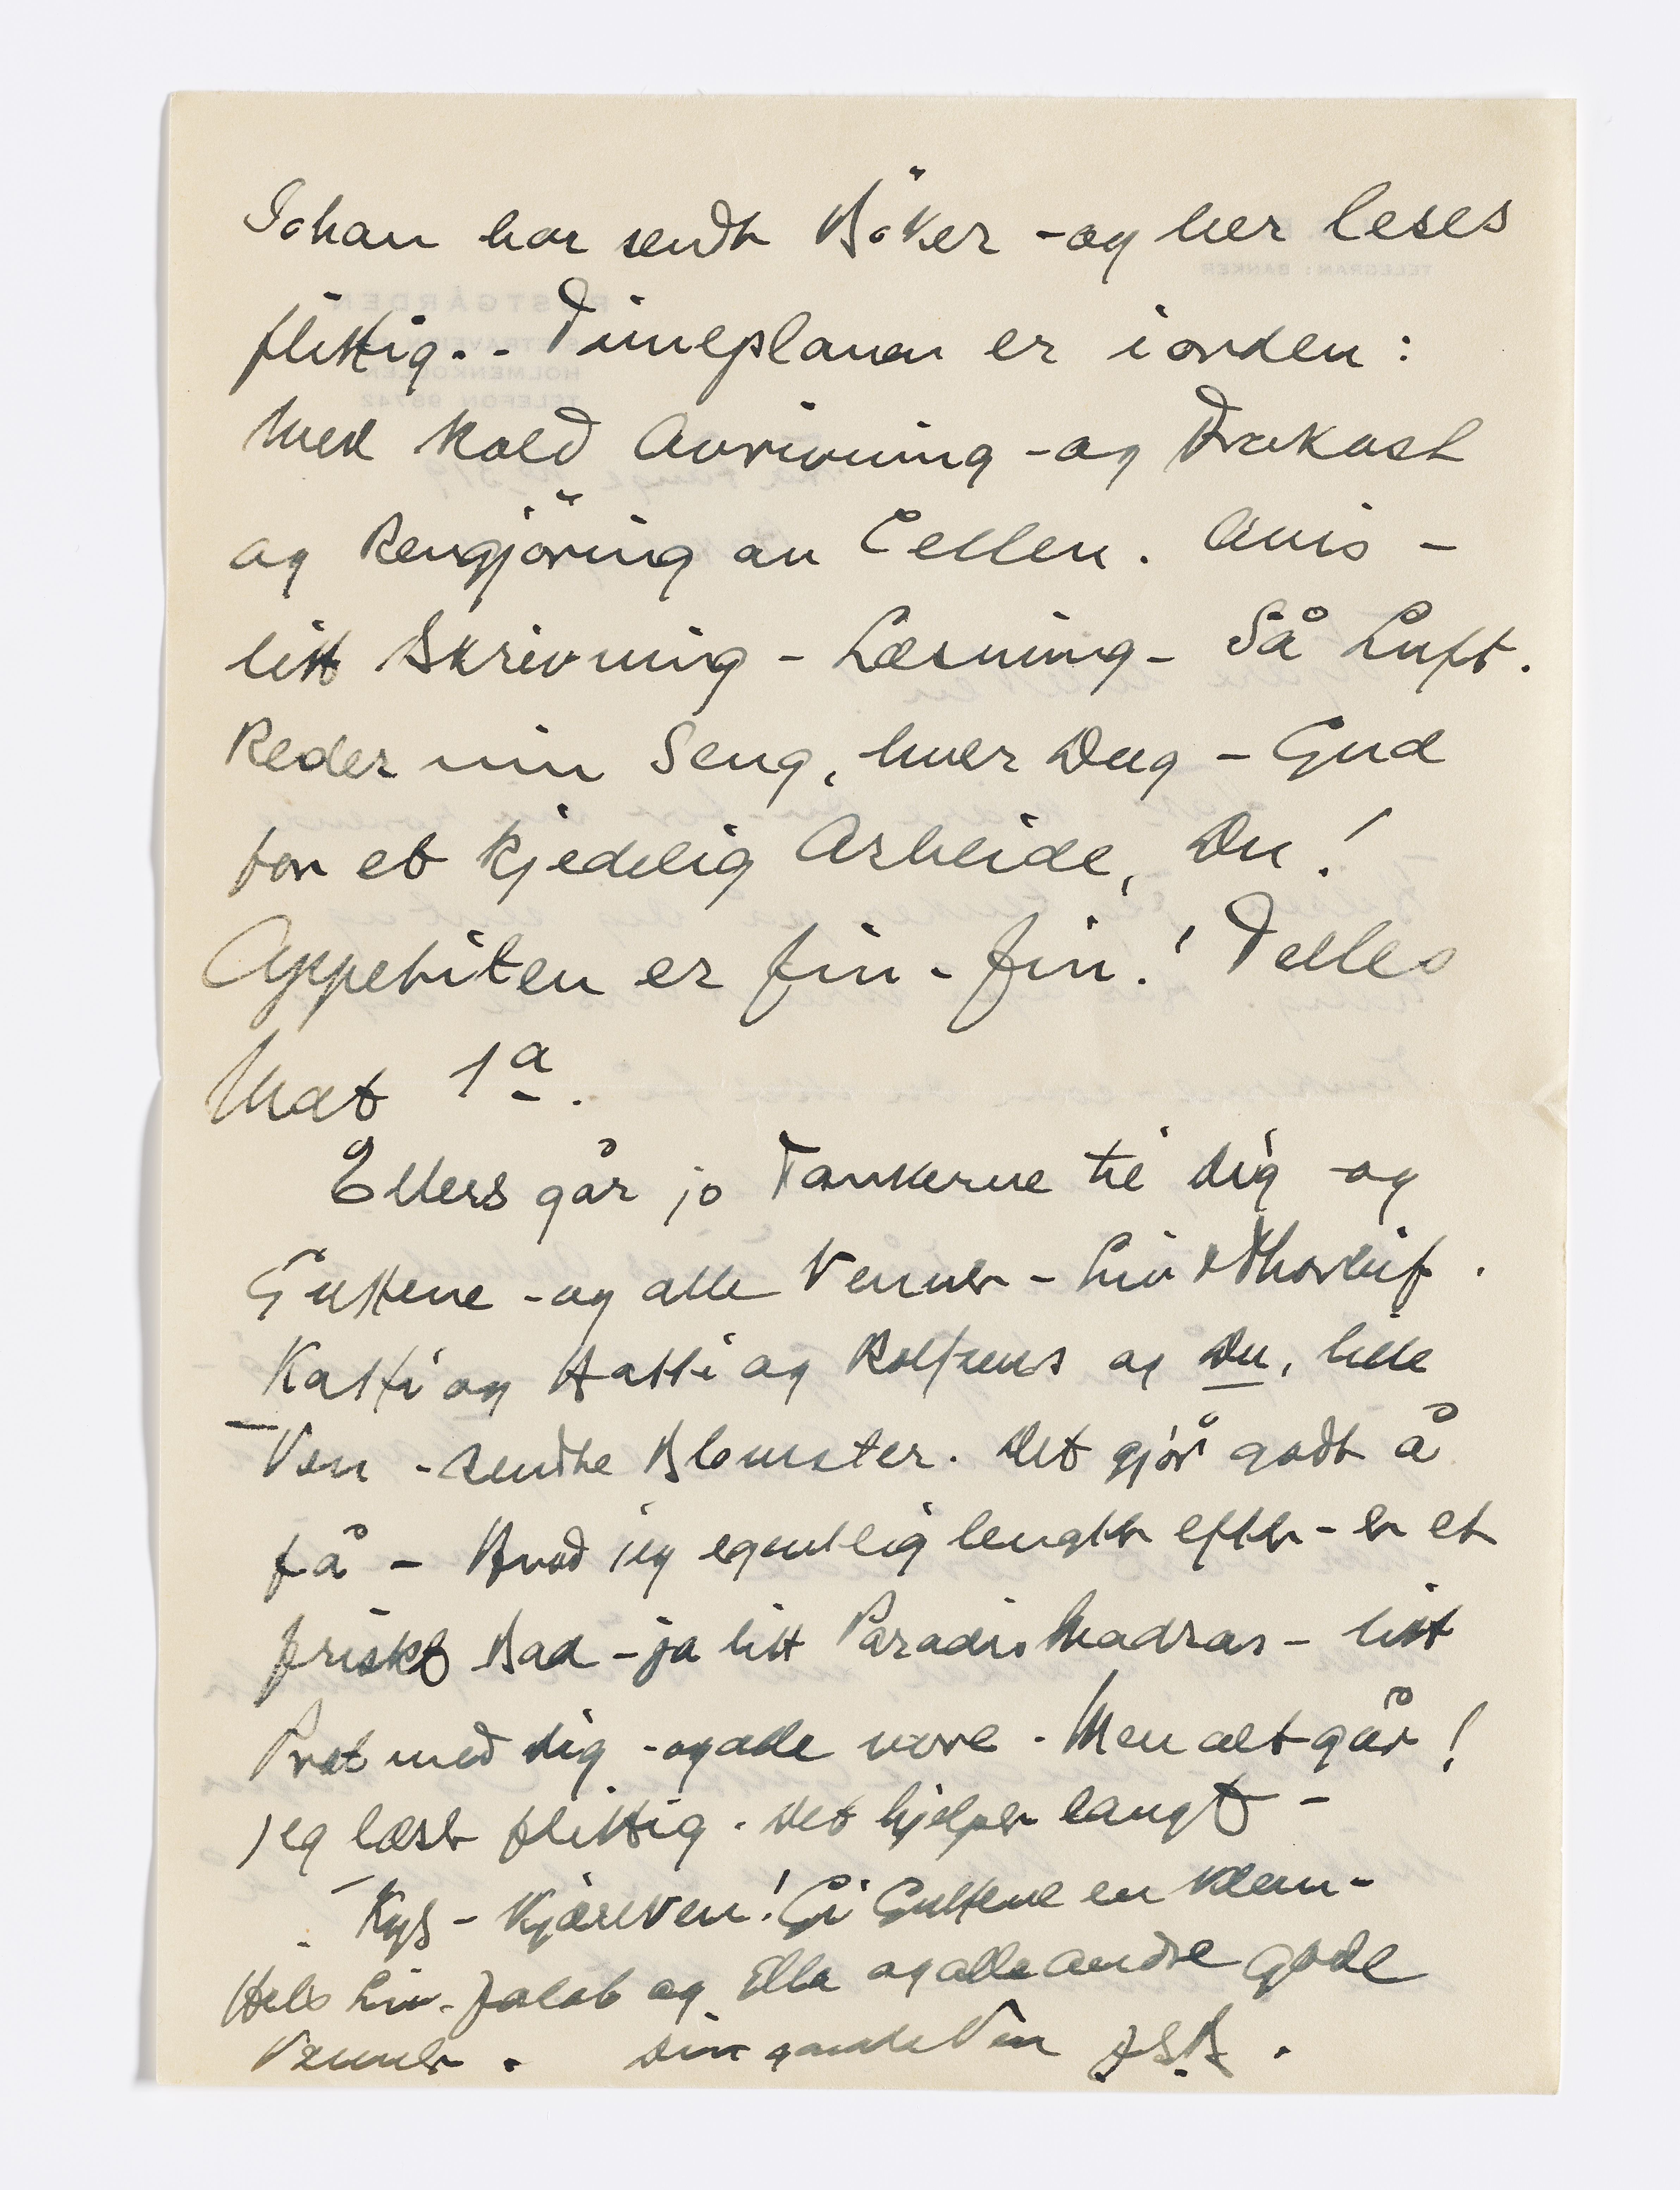 Johan har sendt Böker - og her leses
flittig. - Timeplanen er i orden:
Med Kold Avrivning - og Frokost
og Rengjöring av Cellen. Avis -
litt Skrivning - Læsning - Så Luft.
Reder min Seng, hver Dag - Gud
for et kjedelig Arbeide, Du!
Appetiten er fin-fin! Felles
Mat 1a.
Ellers går jo Tankerne til dig - og
Guttene - og alle Venner - Liv & Thorleif.
Katti og Hatti og Rolfsens og Du, lille
Ven - sendte Blomster. Det gjør godt å
få - Hvad jeg egentlig lengter efter - er et
friskt Bad - ja litt Paradis Madras - litt
Prat med dig - og alle vore. Men alt går!
Jeg læser flittig. Det hjelper langt -
Kys - Kjære Ven! Gi Guttene en Klem -
Hils Liv - Jakob og Ella og alle andre gode
Venner. Din gamle Ven